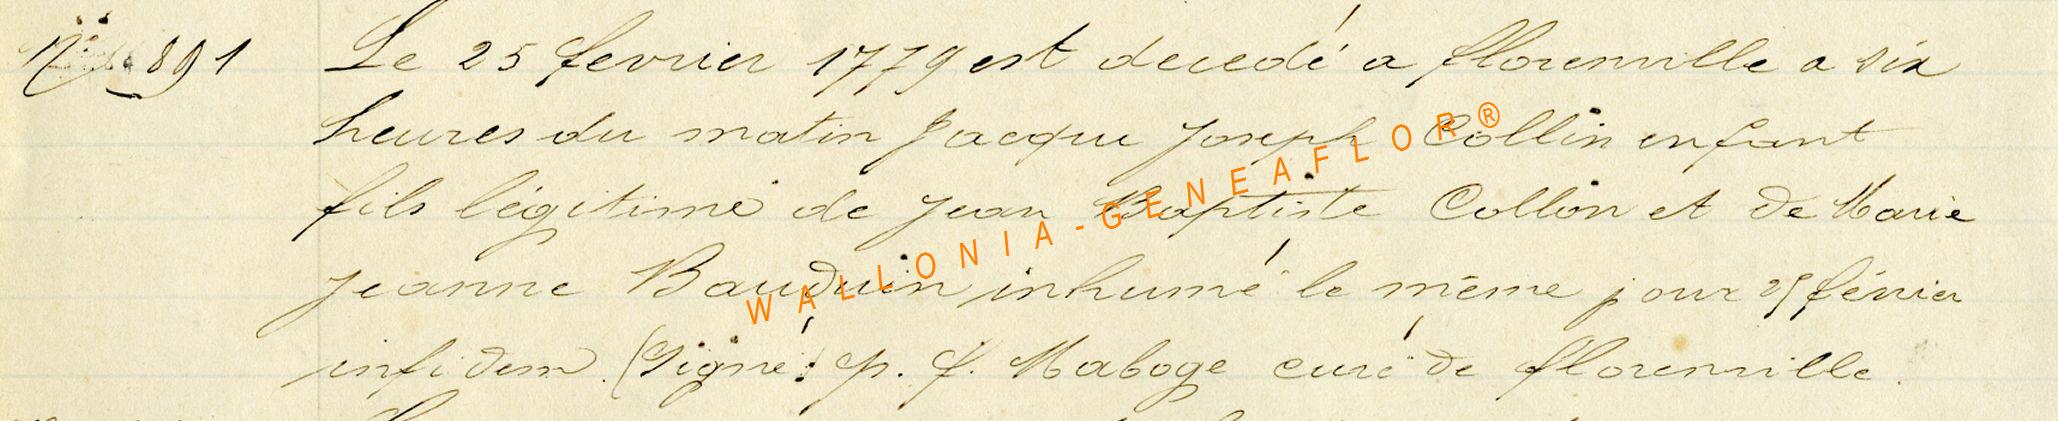 N° 891 Le 25 fevrier 1779 est decedé a florenville a six
heures du matin Jacque Joseph Collin enfant
fils légitime de Jean Baptiste Collin et de Marie
Jeanne Bauduin inhumé le même jour 25 février
infidem (Signé: p. f. Maboge curé de florenville.
WALLONIA-GENEAFLOR®